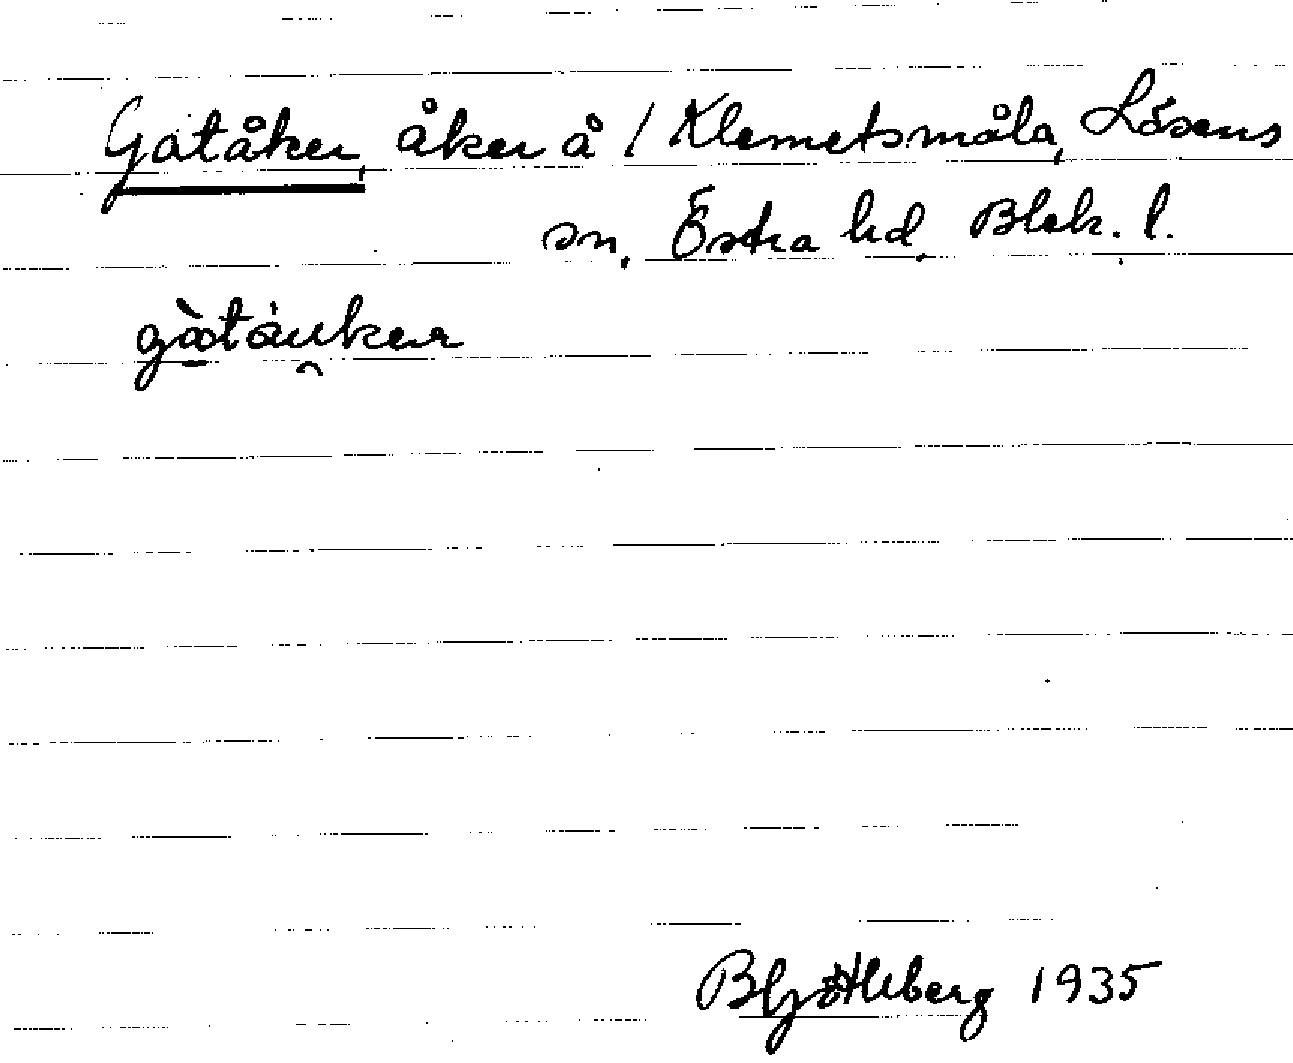 Gatåker, åker å / Klemetsmåla, Lösens
sn, Östra hd, Blek. l.
gàtåuker
1935